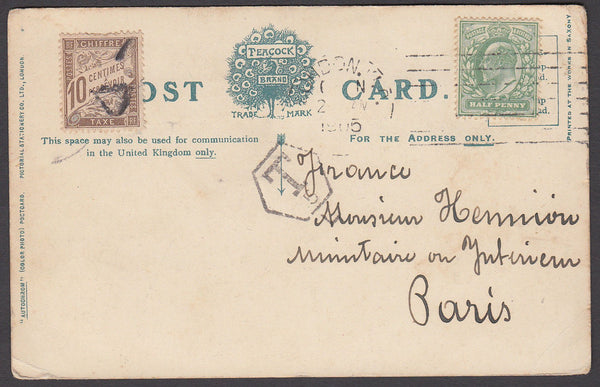 CHIFFRE
10 CENTIMES
À PERCEVOIR
TAXE
PEACOCK
BRAND
TRADE MARK
POST CARD.
LONDON.
1905
POSTAGE & REVENUE
HALF PENNY
This space may also be used for communication
in the United Kingdom only.
FOR THE ADDRESS ONLY.
T
France
Monsieur Hennion
Ministaire on Intérieur
Paris
"AUTOCHROM" (COLOR PHOTO) POSTCARD. PICTORIAL STATIONERY CO. LTD., LONDON.
PRINTED AT THE WORKS IN SAXONY